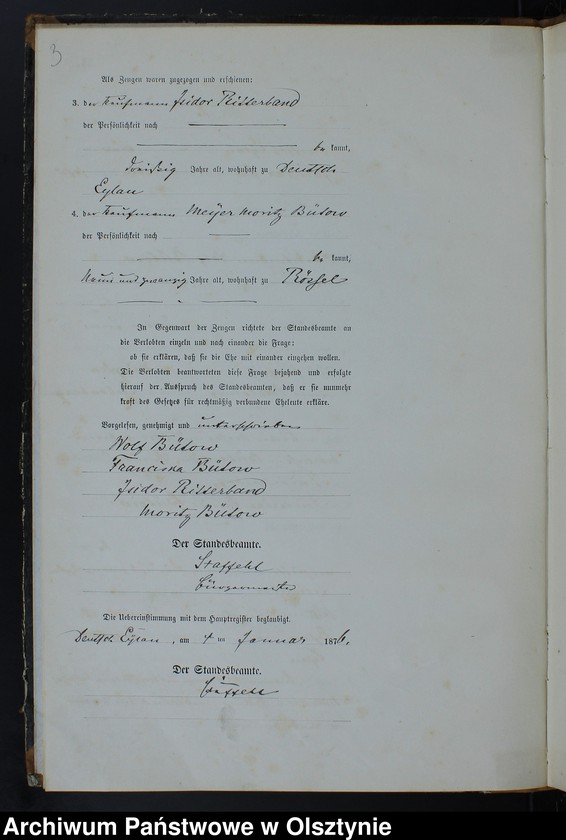 3
Als Zeugen waren zugezogen und erschienen:
3. der Kaufmann Isidor Ritterband
der Persönlichkeit nach
be kannt,
dreißig Jahre alt, wohnhaft zu Deutsch
Eylau
4. der Kaufmann Meyer Moritz Bütow
der Persönlichkeit nach
be kannt,
Neun und zwanzig Jahre alt, wohnhaft zu Rössel
In Gegenwart der Zeugen richtete der Standesbeamte an
die Verlobten einzeln und nach einander die Frage:
ob sie erklären, daß sie die Ehe mit einander eingehen wollen.
Die Verlobten beantworteten diese Frage bejahend und erfolgte
hierauf der Ausspruch des Standesbeamten, daß er sie nunmehr
kraft des Gesetzes für rechtmäßig verbundene Eheleute erkläre.
Vorgelesen, genehmigt und unterschrieben
Wolf Bütow
Franciska Bütow
Isidor Ritterband
Moritz Bütow
Der Standesbeamte.
Staffehl
Bürgermeister
Die Uebereinstimmung mit dem Hauptregister beglaubigt.
Deutsch Eylau, am 4 ten Januar 1876.
Der Standesbeamte.
Archiwum Państwowe w Olsztynie